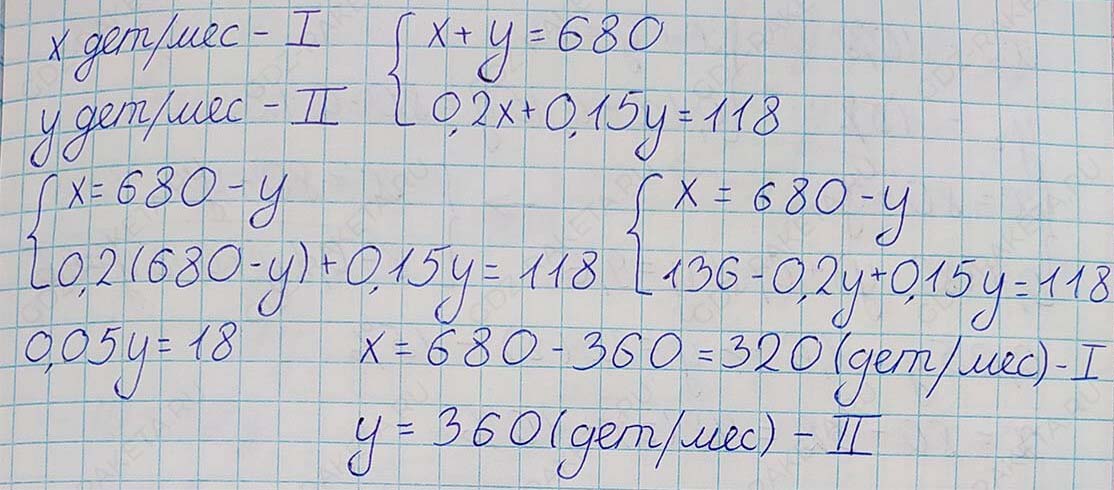 x дет/мес - I { x + y = 680
y дет/мес - II 0,2x + 0,15y = 118
{ x = 680 - y { x = 680 - y
0,2(680 - y) + 0,15y = 118 136 - 0,2y + 0,15y = 118
0,05y = 18 x = 680 - 360 = 320 (дет/мес) - I
y = 360 (дет/мес) - II